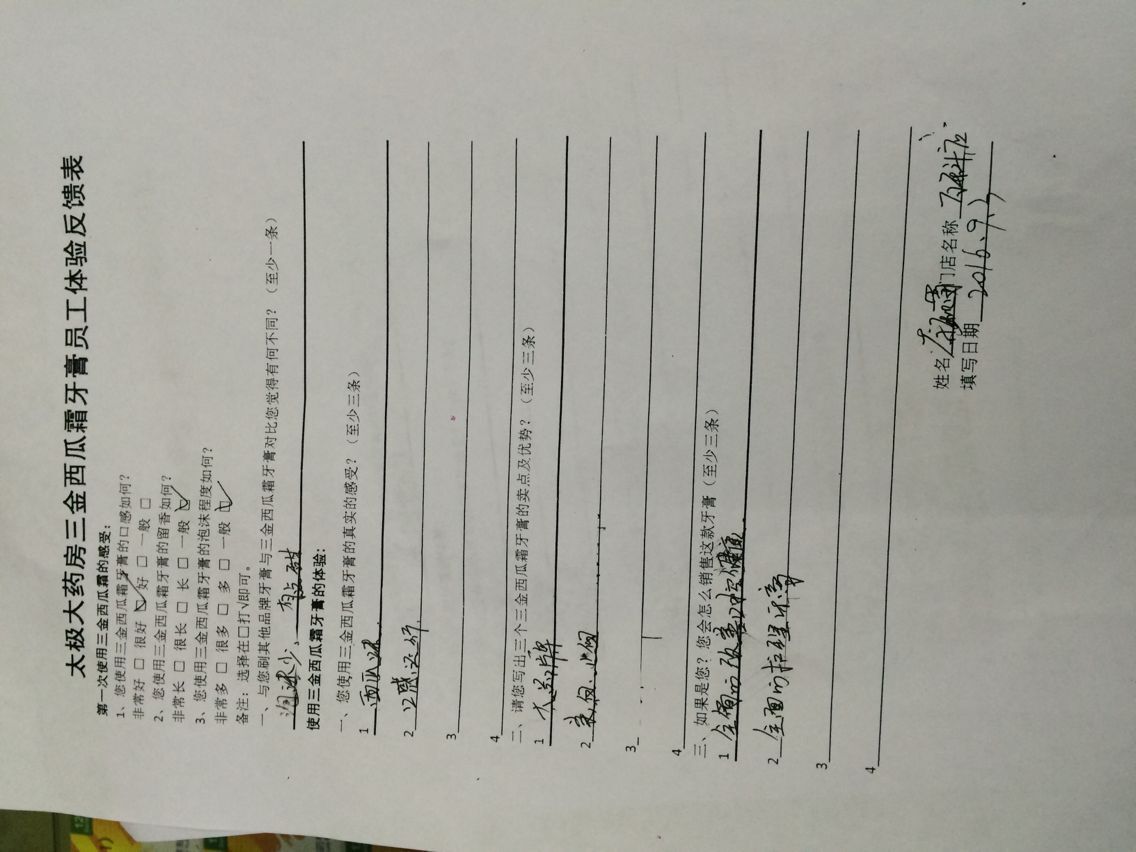 太极大药房三金西瓜霜牙膏员工体验反馈表
第一次使用三金西瓜霜的感受：
1、您使用三金西瓜霜牙膏的口感如何？
非常好 □ 很好 ☑ 好 □ 一般 □
2、您使用三金西瓜霜牙膏的留香如何？
非常长 □ 很长 □ 长 □ 一般 ☑
3、您使用三金西瓜霜牙膏的泡沫程度如何？
非常多 □ 很多 □ 多 □ 一般 ☑
备注：选择在□打√即可。
一、与您刷其他品牌牙膏与三金西瓜霜牙膏对比您觉得有何不同？（至少一条）
泡沫少、有点甜
使用三金西瓜霜牙膏的体验：
一、您使用三金西瓜霜牙膏的真实的感受？（至少三条）
1 西瓜味
2 口感还行
3
4
二、请您写出三个三金西瓜霜牙膏的卖点及优势？（至少三条）
1 大品牌
2 美白、
3
4
三、如果是您？您会怎么销售这款牙膏（至少三条）
1 全面的改善口腔健康
2 全面的护理牙膏
3
4
姓名 门店名称
填写日期 2016.9.3